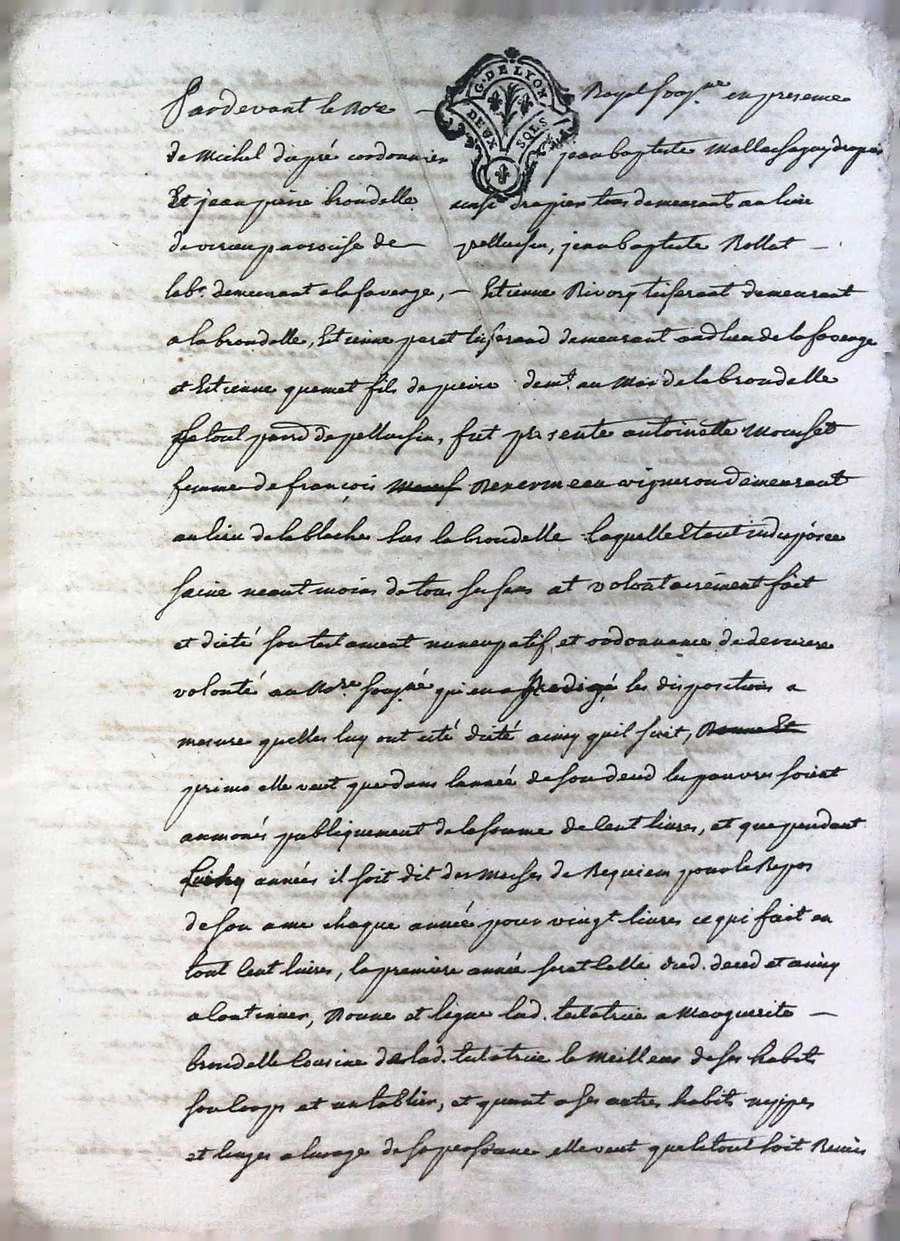 G. DE LYON
DEUX SOLS
Pardevant le No.re Royal soug.né en presence
de Michel dupré cordonnier jean baptiste drapier
Et jean pierre brondelle aussi drapier tous demeurant au lieu
de virieu parroisse de pellussin, jean baptiste Rollet
lab.r demeurant a la faverge, Etienne Rivory tisserant demeurant
a la brondelle, Etienne peret tisserand demeurant audlieu de la faverge
et Etienne quemet fils de pierre dem.t au Mas de la brondelle
le tout parr de pellussin, fut presente antoinette Mousset
femme de françois vigneron demeurant
au lieu de la blache sus la brondelle laquelle Etant indisposée
saine neantmoins de tous ses sens at volontairement fait
et dicté son testament nuncupatif et ordonnance de derniere
volonté au No.re sougné qui en a Redigé les dispositions a
mesure quelles luy ont eté dicté ainsy quil suit, Donne Et
primo elle veut que dans lannée de son deced les pauvres soient
aumonés publiquement de la somme de Cent livres, et que pendant
Cinq années il soit dit des Messes de Requiem pour le Repos
de son ame chaque année pour vingt livres ce qui fait en
tout Cent livres, la premiere année serat Celle dud. deced et ainsy
a Continuer, Donne et legue lad. testatrice a Marguerite
brondelle Cousine de lad. testatrice le Meilleur de ses habits
son Corps et un tablier, et quant a ses autres habits nyppes
et linges a lusage de sa personne elle veut que le tout soit Remis